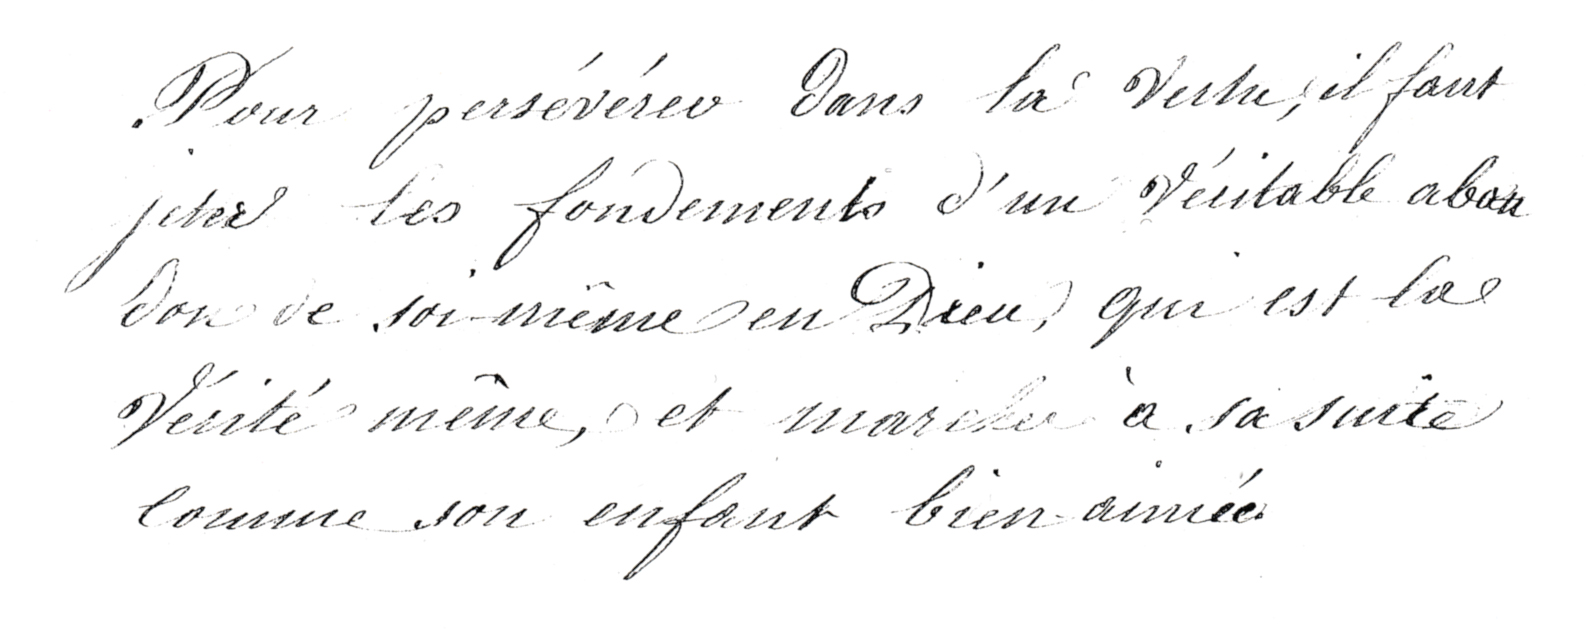 Pour persévérer dans la vertu, il faut
jeter les fondements d'un véritable aban
don de soi-même en Dieu, qui est la
Vérité même, et marcher à sa suite
comme son enfant bien-aimée